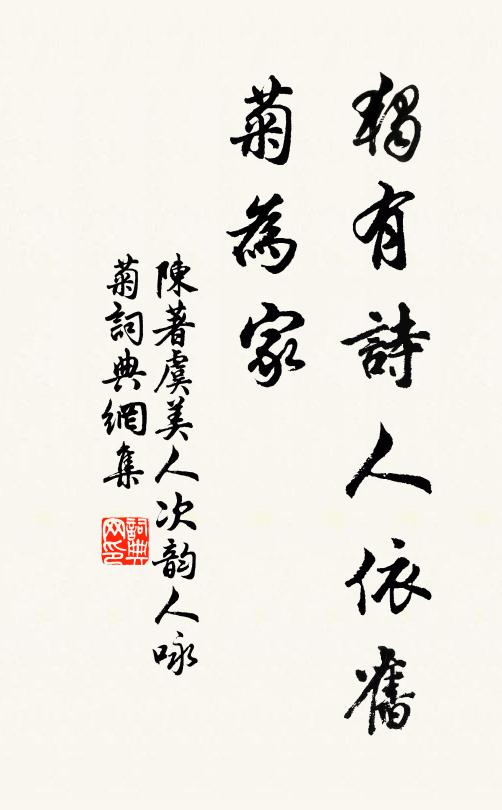 獨有詩人依舊
菊為家
陳著虞美人次韵人咏
菊詞典網集
詞典
网印